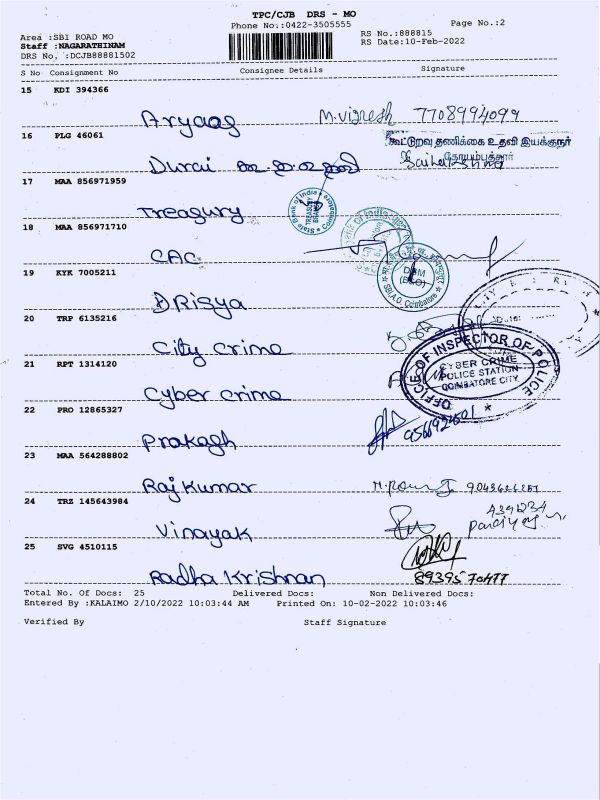 TPC/CJB DRS - MO
Phone No:0422-3505555
Page No.:2
Area :SBI ROAD MO
RS No.:888815
Staff :NAGARATHINAM
RS Date:10-Feb-2022
DRS No. :DCJB88881502
S No Consignment No Consignee Details Signature
15 KDI 394366
Aryaas M.Vignesh 7708994099
16 PLG 46061
கூட்டுறவு தணிக்கை உதவி இயக்குநர்
கோயம்புத்தூர்
Durai
17 MAA 856971959
Treasury
State Bank of India
TREASURY BRANCH
18 MAA 856971710
CAC
19 KYK 7005211
DPM
SBI.A.O. Coimbatore
Drisya
20 TRP 6135216
City Crime
OFFICE OF INSPECTOR OF POLICE
CYBER CRIME
POLICE STATION
COIMBATORE CITY
21 RPT 1314120
Cyber crime
22 PRO 12865327
Prakash
23 MAA 564288802
Raj Kumar
24 TRZ 145643984
Vinayak
25 SVG 4510115
Radha Krishnan
Total No. Of Docs: 25 Delivered Docs: Non Delivered Docs:
Entered By :KALAIMO 2/10/2022 10:03:44 AM Printed On: 10-02-2022 10:03:46
Verified By Staff Signature